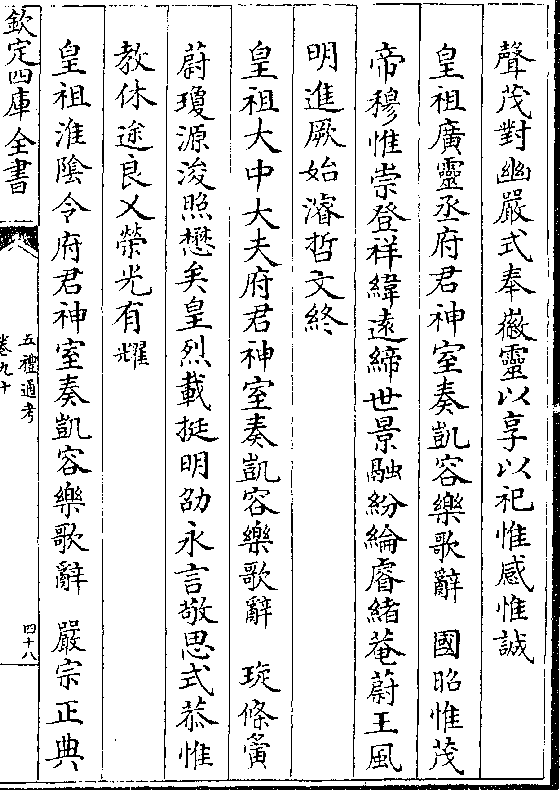 聲茂對幽嚴式奉徽靈以享以祀惟感惟誠
皇祖廣靈丞府君神室奏凱容樂歌辭　國昭惟茂
帝穆惟崇登祥緯遠締世景融紛綸睿緒菴蔚王風
明進厥始濬哲文終
皇祖大中大夫府君神室奏凱容樂歌辭　琁條夤
蔚瓊源浚照懋矣皇烈載挺明劭永言敬思式恭惟
教休途良乂榮光有耀
皇祖淮隂令府君神室奏凱容樂歌辭　嚴宗正典
欽定四庫全書
五禮通考
卷九十
四十八